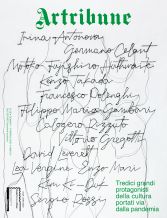 Artribune
Irina Antonova
Germano Celant
Motoko Fujishiro Huthwaite
Kenzo Takada
Francesco Dalinghy
Filippo Maria Gambari
Calogero Rizzuto
Vittorio Gregotti
David Leverett
Lea Vergine Enzo Mari
Kim Ki-Duk
Sergio Rossi
Tredici grandi
protagonisti
della cultura
portati via
dalla pandemia